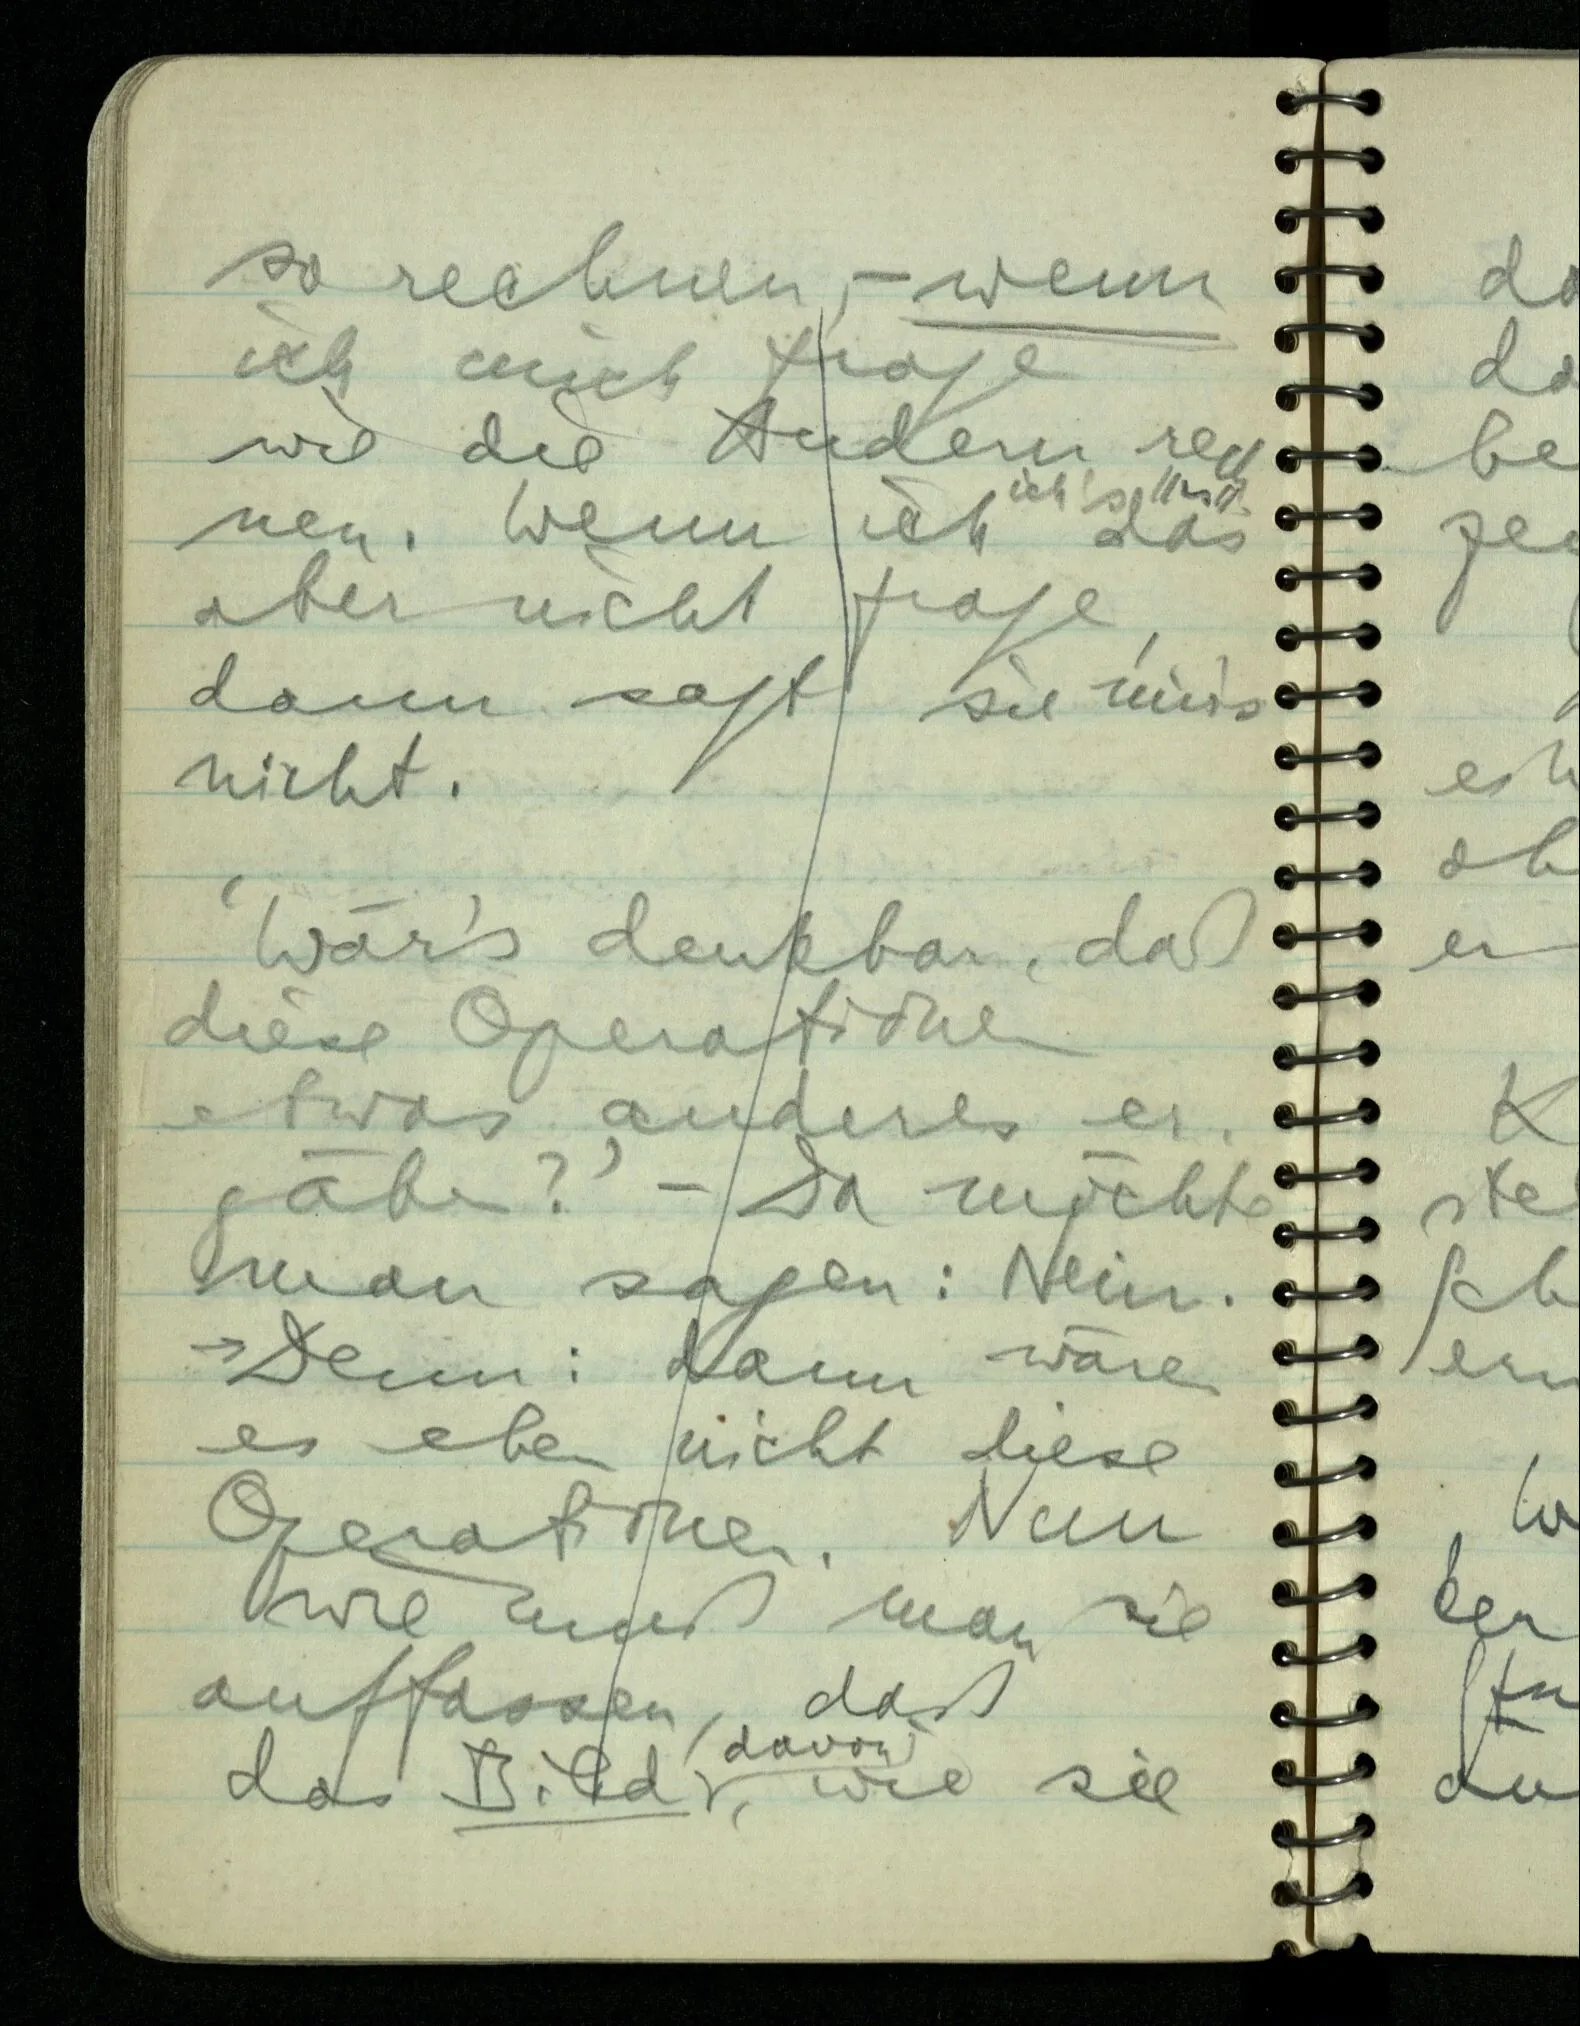 so rechnen, – wenn
ich mich frage
wie die Andern rech
nen. Wenn ich das
aber nicht frage,
dann sagt sie mir's
nicht.
'Wär's denkbar, daß
diese Operationen
etwas anderes er-
gäben?' – Da möchte
man sagen: Nein.
→ Denn: dann wären
es eben nicht diese
Operationen. Nun
wie muß man sie
auffassen, daß
(davon)
das Bild, wie sie
do
da
be
es w
ob
er
K
ste
sch
ern
W
ker